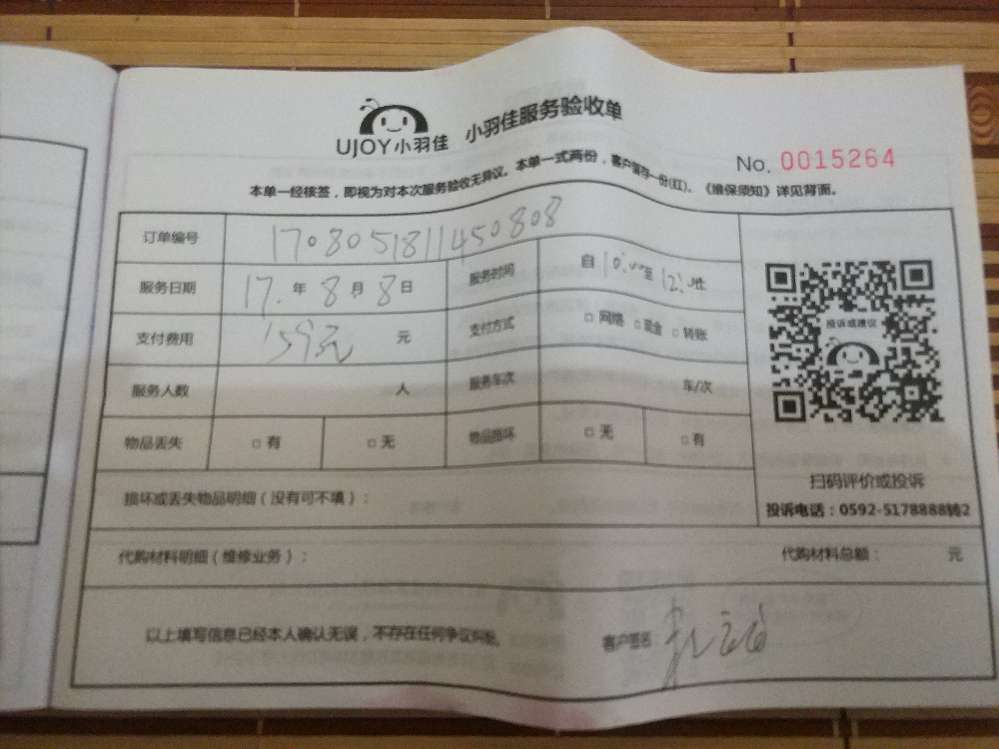 UJOY小羽佳 小羽佳服务验收单
No. 0015264
本单一经核签，即视为对本次服务验收无异议。本单一式两份，客户留存一份(红)。《维保须知》详见背面。
订单编号 1708051811450808
服务日期 17.年8月8日 服务时间 自10:00至12:00止
支付费用 159元 元 支付方式 □ 网络 □ 现金 □ 转账
服务人数 人 服务车次 车/次
物品丢失 □ 有 □ 无 物品损坏 □ 无 □ 有
投诉或建议
扫码评价或投诉
投诉电话：0592-5178888转2
损坏或丢失物品明细（没有可不填）：
代购材料明细（维修业务）： 代购材料总额： 元
以上填写信息已经本人确认无误，不存在任何争议纠纷。 客户签名